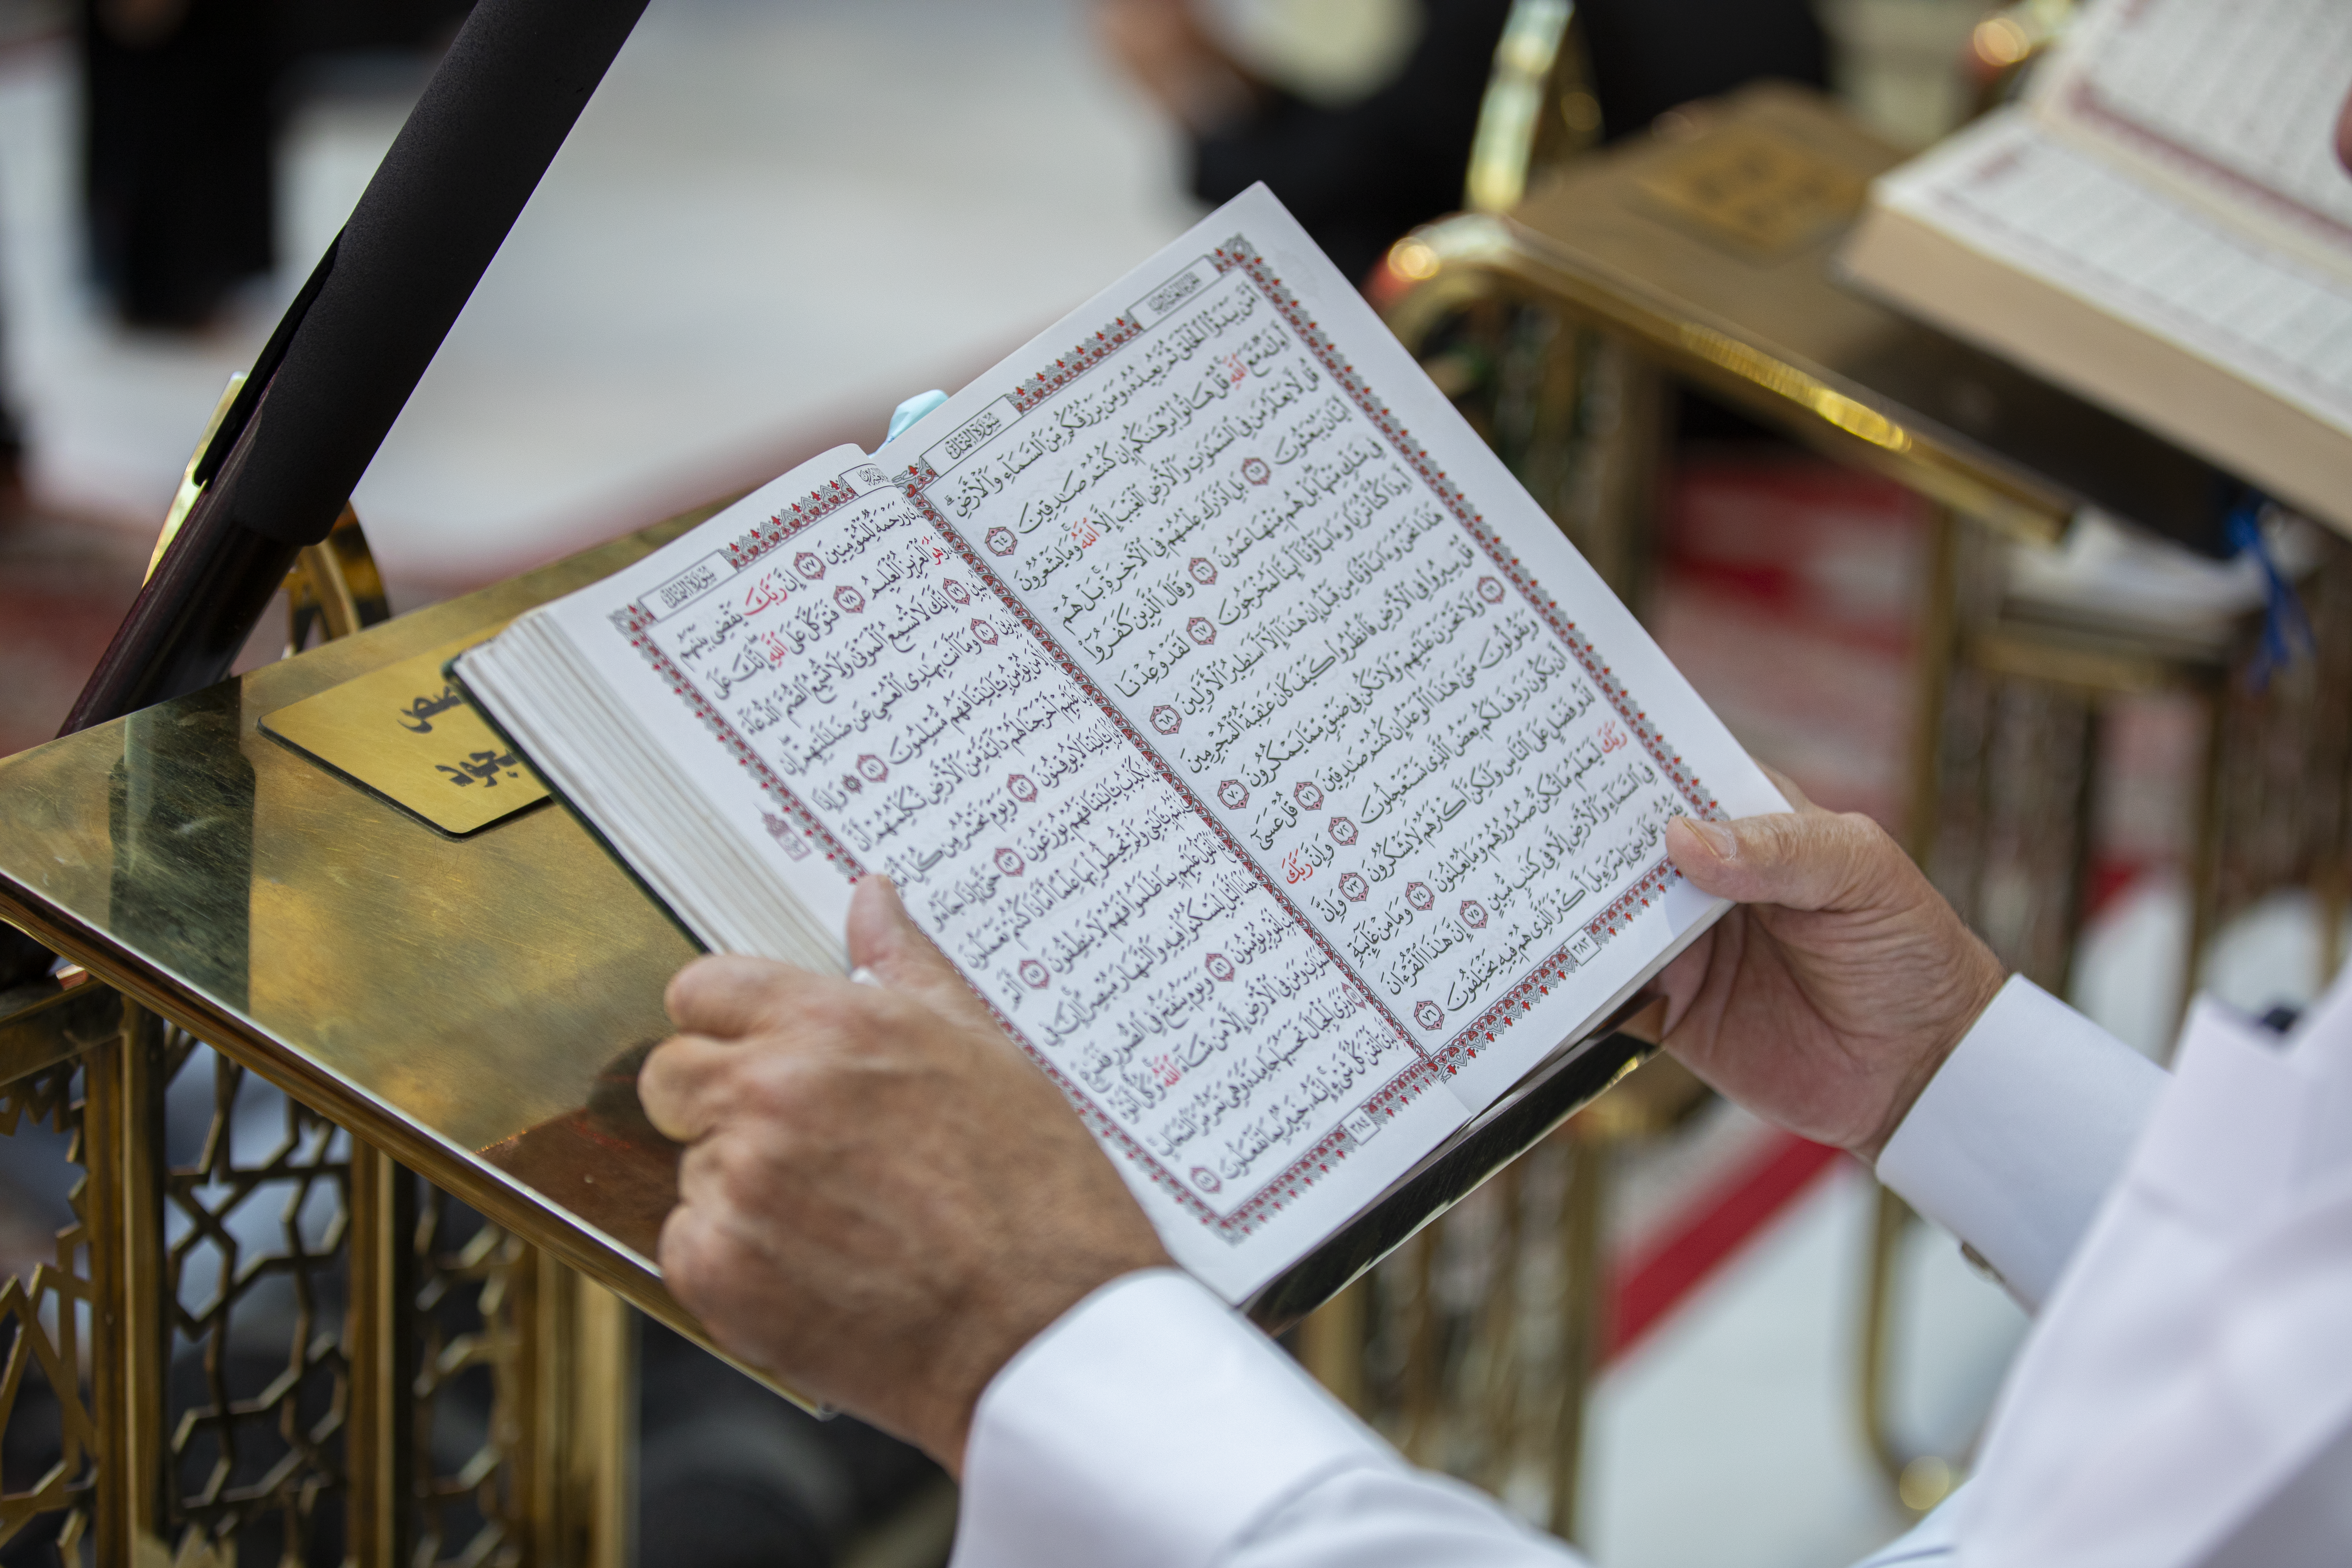 سُورَةُ النَّمْلِ
أَمَّن يَبْدَؤُا۟ ٱلْخَلْقَ ثُمَّ يُعِيدُهُۥ وَمَن يَرْزُقُكُم مِّنَ ٱلسَّمَآءِ وَٱلْأَرْضِ ۗ
أَءِلَٰهٌ مَّعَ ٱللَّهِ ۚ قُلْ هَاتُوا۟ بُرْهَٰنَكُمْ إِن كُنتُمْ صَٰدِقِينَ ٦٤
قُل لَّا يَعْلَمُ مَن فِى ٱلسَّمَٰوَٰتِ وَٱلْأَرْضِ ٱلْغَيْبَ إِلَّا ٱللَّهُ ۚ وَمَا يَشْعُرُونَ
أَيَّانَ يُبْعَثُونَ ٦٥ بَلِ ٱدَّٰرَكَ عِلْمُهُمْ فِى ٱلْءَاخِرَةِ ۚ بَلْ هُمْ
فِى شَكٍّ مِّنْهَا ۖ بَلْ هُم مِّنْهَا عَمُونَ ٦٦ وَقَالَ ٱلَّذِينَ كَفَرُوٓا۟
أَءِذَا كُنَّا تُرَٰبًا وَءَابَآؤُنَآ أَئِنَّا لَمُخْرَجُونَ ٦٧ لَقَدْ وُعِدْنَا
هَٰذَا نَحْنُ وَءَابَآؤُنَا مِن قَبْلُ إِنْ هَٰذَآ إِلَّآ أَسَٰطِيرُ ٱلْأَوَّلِينَ ٦٨
قُلْ سِيرُوا۟ فِى ٱلْأَرْضِ فَٱنظُرُوا۟ كَيْفَ كَانَ عَٰقِبَةُ ٱلْمُجْرِمِينَ
٦٩ وَلَا تَحْزَنْ عَلَيْهِمْ وَلَا تَكُن فِى ضَيْقٍ مِّمَّا يَمْكُرُونَ ٧٠
وَيَقُولُونَ مَتَىٰ هَٰذَا ٱلْوَعْدُ إِن كُنتُمْ صَٰدِقِينَ ٧١ قُلْ عَسَىٰٓ
أَن يَكُونَ رَدِفَ لَكُم بَعْضُ ٱلَّذِى تَسْتَعْجِلُونَ ٧٢ وَإِنَّ رَبَّكَ
لَذُو فَضْلٍ عَلَى ٱلنَّاسِ وَلَٰكِنَّ أَكْثَرَهُمْ لَا يَشْكُرُونَ ٧٣ وَإِنَّ
رَبَّكَ لَيَعْلَمُ مَا تُكِنُّ صُدُورُهُمْ وَمَا يُعْلِنُونَ ٧٤ وَمَا مِنْ غَآئِبَةٍ
فِى ٱلسَّمَآءِ وَٱلْأَرْضِ إِلَّا فِى كِتَٰبٍ مُّبِينٍ ٧٥ إِنَّ هَٰذَا ٱلْقُرْءَانَ
عَلَىٰ بَنِىٓ إِسْرَٰٓءِيلَ أَكْثَرَ ٱلَّذِى هُمْ فِيهِ يَخْتَلِفُونَ ٧٦
٣٨٣
سُورَةُ النَّمْلِ
وَرَحْمَةٌ لِّلْمُؤْمِنِينَ ٧٧ إِنَّ رَبَّكَ يَقْضِى بَيْنَهُم
وَهُوَ ٱلْعَزِيزُ ٱلْعَلِيمُ ٧٨ فَتَوَكَّلْ عَلَى ٱللَّهِ ۖ إِنَّكَ عَلَى
٧٩ إِنَّكَ لَا تُسْمِعُ ٱلْمَوْتَىٰ وَلَا تُسْمِعُ ٱلصُّمَّ ٱلدُّعَآءَ
٨٠ وَمَآ أَنتَ بِهَٰدِى ٱلْعُمْىِ عَن ضَلَٰلَتِهِمْ ۖ إِن
مَن يُؤْمِنُ بِـَٔايَٰتِنَا فَهُم مُّسْلِمُونَ ٨١ وَإِذَا
عَلَيْهِمْ أَخْرَجْنَا لَهُمْ دَآبَّةً مِّنَ ٱلْأَرْضِ تُكَلِّمُهُمْ أَنَّ
بِـَٔايَٰتِنَا لَا يُوقِنُونَ ٨٢ وَيَوْمَ نَحْشُرُ مِن كُلِّ
يُكَذِّبُ بِـَٔايَٰتِنَا فَهُمْ يُوزَعُونَ ٨٣ حَتَّىٰٓ إِذَا جَآءُو
بِـَٔايَٰتِى وَلَمْ تُحِيطُوا۟ بِهَا عِلْمًا أَمَّاذَا كُنتُمْ تَعْمَلُونَ
ٱلْقَوْلُ عَلَيْهِم بِمَا ظَلَمُوا۟ فَهُمْ لَا يَنطِقُونَ ٨٥ أَلَمْ
ٱلَّيْلَ لِيَسْكُنُوا۟ فِيهِ وَٱلنَّهَارَ مُبْصِرًا ۚ إِنَّ فِى
لِّقَوْمٍ يُؤْمِنُونَ ٨٦ وَيَوْمَ يُنفَخُ فِى ٱلصُّورِ فَفَزِعَ
وَمَن فِى ٱلْأَرْضِ إِلَّا مَن شَآءَ ٱللَّهُ ۚ وَكُلٌّ أَتَوْهُ
وَتَرَى ٱلْجِبَالَ تَحْسَبُهَا جَامِدَةً وَهِىَ تَمُرُّ مَرَّ ٱلسَّحَابِ
أَتْقَنَ كُلَّ شَىْءٍ ۚ إِنَّهُۥ خَبِيرٌۢ بِمَا تَفْعَلُونَ ٨٨
٣٨٤